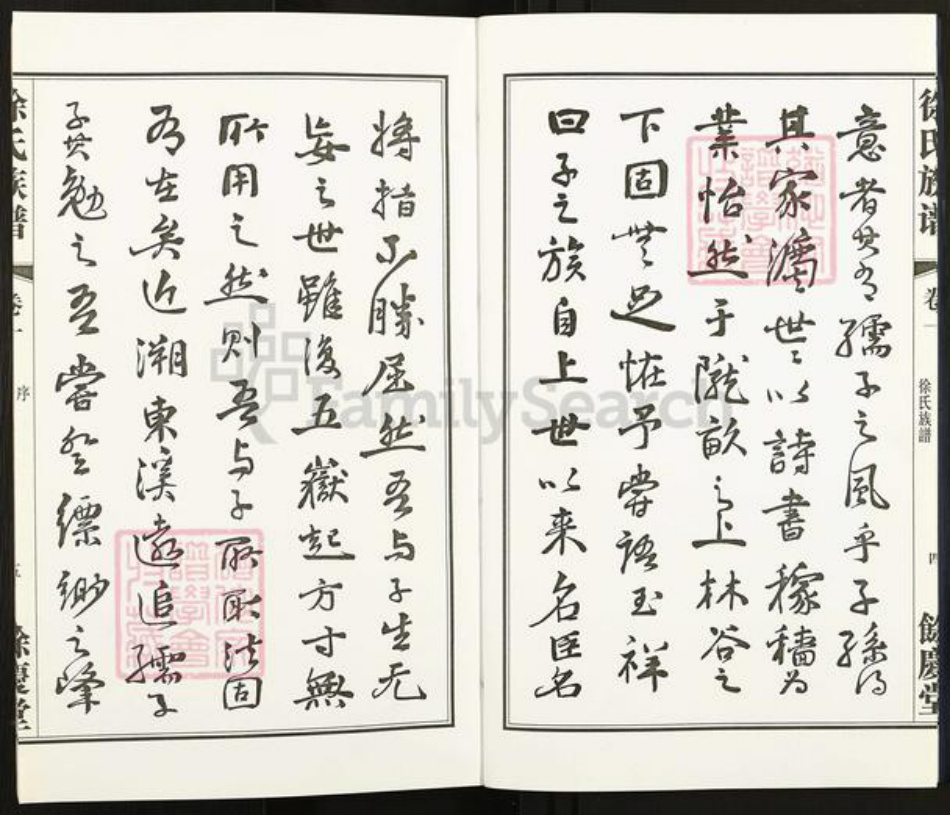 徐氏族谱
卷一
徐氏族譜
四
餘慶堂
意者其有孺子之風乎子孫
其家濡世以詩書稼穡为
業怡然于隴畝之上林谷之
下固無足怪予嘗語玉祥
曰子之族自上世以来名臣名
將指不勝屈然吾与子生无
妄之世雖復五嶽起方寸無
所用之然則吾与子所取法固
有在矣近溯東溪遠追孺子
子其勉之吾嘗登縹緲之峰
徐氏族譜
卷一
序
五
餘慶堂
FamilySearch